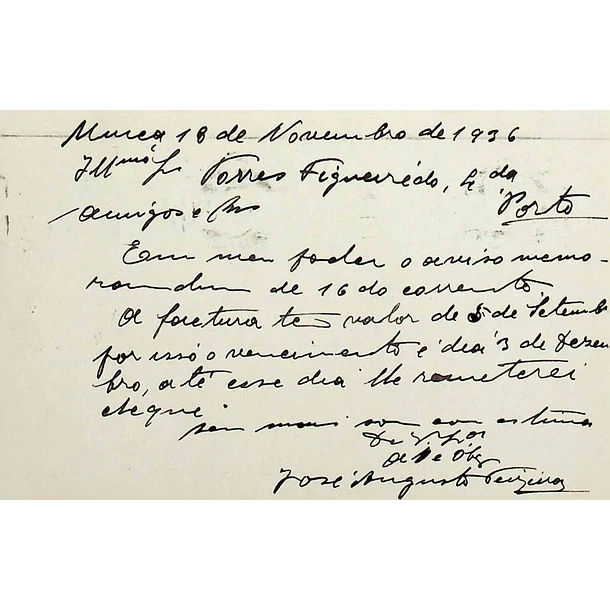 Murça 18 de Novembro de 1936
Illmos Srs Torres Figueirêdo, Lda
Amigos e Srs Porto
Em meu poder o aviso memo-
randum de 16 do corrente.
A factura tem valor de 5 de Setemb
por isso o vencimento é dia 3 de Dezem
bro, até esse dia lhe remeterei
cheque
sem mais sou com estima
De V. Sas
José Augusto Teixeira